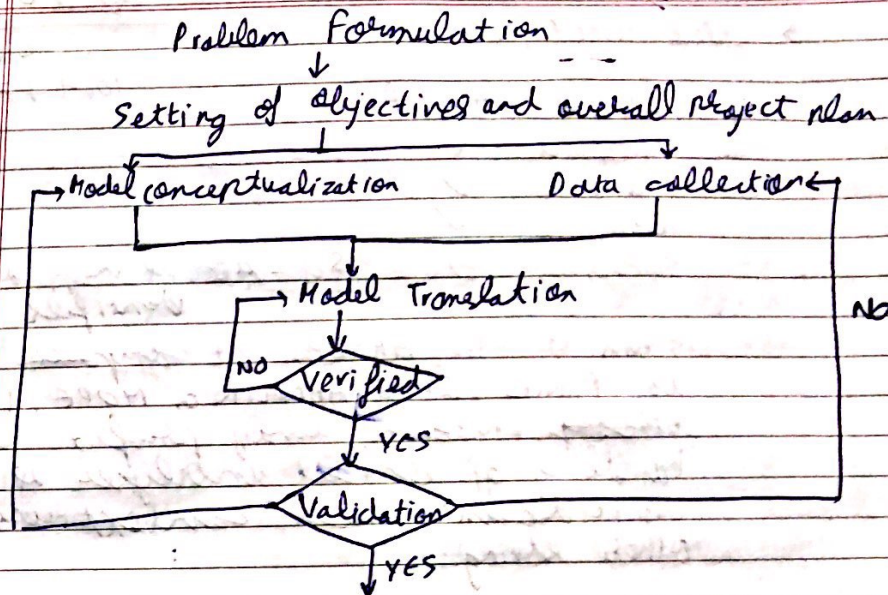 Problem Formulation
Setting of objectives and overall project plan
Model conceptualization Data collection
Model Translation
No
NO
Verified
YES
Validation
YES